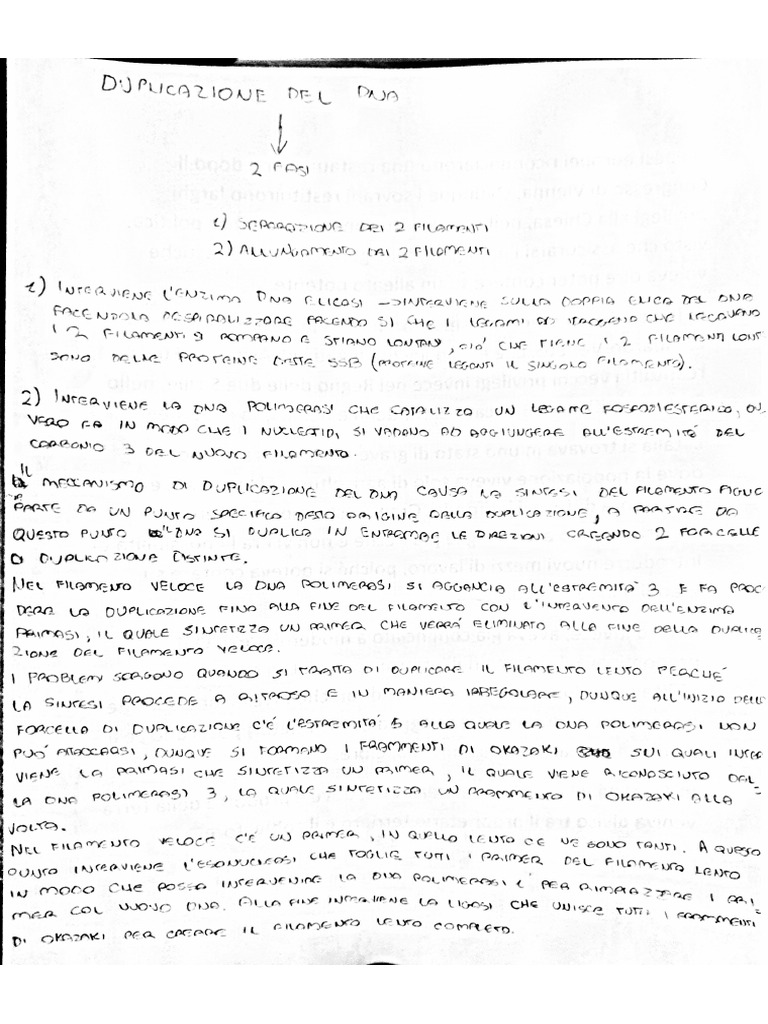 DUPLICAZIONE DEL DNA
2 FASI
1) SEPARAZIONE DEI 2 FILAMENTI
2) ALLUNGAMENTO DEI 2 FILAMENTI
1) INTERVIENE L'ENZIMA DNA ELICASI → INTERVIENE SULLA DOPPIA ELICA DEL DNA
FACENDOLA DESPIRALIZZARE FACENDO SÌ CHE I LEGAMI AD IDROGENO CHE LEGAVANO
I 2 FILAMENTI SI ROMPANO E STIANO LONTANI, CIÒ CHE TIENE I 2 FILAMENTI LONT
SONO DELLE PROTEINE DETTE SSB (PROTEINE LEGANTI IL SINGOLO FILAMENTO).
2) INTERVIENE LA DNA POLIMERASI CHE CATALIZZA UN LEGAME FOSFODIESTERICO, OV
VERO FA IN MODO CHE I NUCLEOTIDI SI VADANO AD AGGIUNGERE ALL'ESTREMITÀ DEL
CARBONIO 3 DEL NUOVO FILAMENTO.
IL MECCANISMO DI DUPLICAZIONE DEL DNA CAUSA LA SINTESI DEL FILAMENTO FIGLIO
PARTE DA UN PUNTO SPECIFICO DETTO ORIGINE DELLA DUPLICAZIONE, A PARTIRE DA
QUESTO PUNTO L'DNA SI DUPLICA IN ENTRAMBE LE DIREZIONI CREANDO 2 FORCELLE
DI DUPLICAZIONE DISTINTE.
NEL FILAMENTO VELOCE LA DNA POLIMERASI SI AGGANCIA ALL'ESTREMITÀ 3 E FA PROC
DERE LA DUPLICAZIONE FINO ALLA FINE DEL FILAMENTO CON L'INTERVENTO DELL'ENZIMA
PRIMASI, IL QUALE SINTETIZZA UN PRIMER CHE VERRÀ ELIMINATO ALLA FINE DELLA DUPLICA
ZIONE DEL FILAMENTO VELOCE.
I PROBLEMI SORGONO QUANDO SI TRATTA DI DUPLICARE IL FILAMENTO LENTO PERCHÉ
LA SINTESI PROCEDE A RITROSO E IN MANIERA IRREGOLARE, DUNQUE ALL'INIZIO DELLA
FORCELLA DI DUPLICAZIONE C'È L'ESTREMITÀ 5 ALLA QUALE LA DNA POLIMERASI NON
PUÒ ATTACCARSI, DUNQUE SI FORMANO I FRAMMENTI DI OKAZAKI SUI QUALI INTER
VIENE LA PRIMASI CHE SINTETIZZA UN PRIMER, IL QUALE VIENE RICONOSCIUTO DAL
LA DNA POLIMERASI 3, LA QUALE SINTETIZZA UN FRAMMENTO DI OKAZAKI ALLA
VOLTA.
NEL FILAMENTO VELOCE C'È UN PRIMER, IN QUELLO LENTO CE NE SONO TANTI. A QUESTO
PUNTO INTERVIENE L'ESONUCLEASI CHE TOGLIE TUTTI I PRIMER DEL FILAMENTO LENTO
IN MODO CHE POSSA INTERVENIRE LA DNA POLIMERASI 1 PER RIMPIAZZARE I PRI
MER COL NUOVO DNA. ALLA FINE INTERVIENE LA LIGASI CHE UNISCE TUTTI I FRAMMENTI
DI OKAZAKI PER CREARE IL FILAMENTO LENTO COMPLETO.